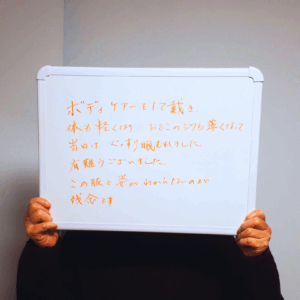 ボディケアーをして戴き
体も軽くなり おでこのシワも薄くなって
当日はぐっすり眠れました。
有難うございました。
この服と姿がわからないのが
残念です